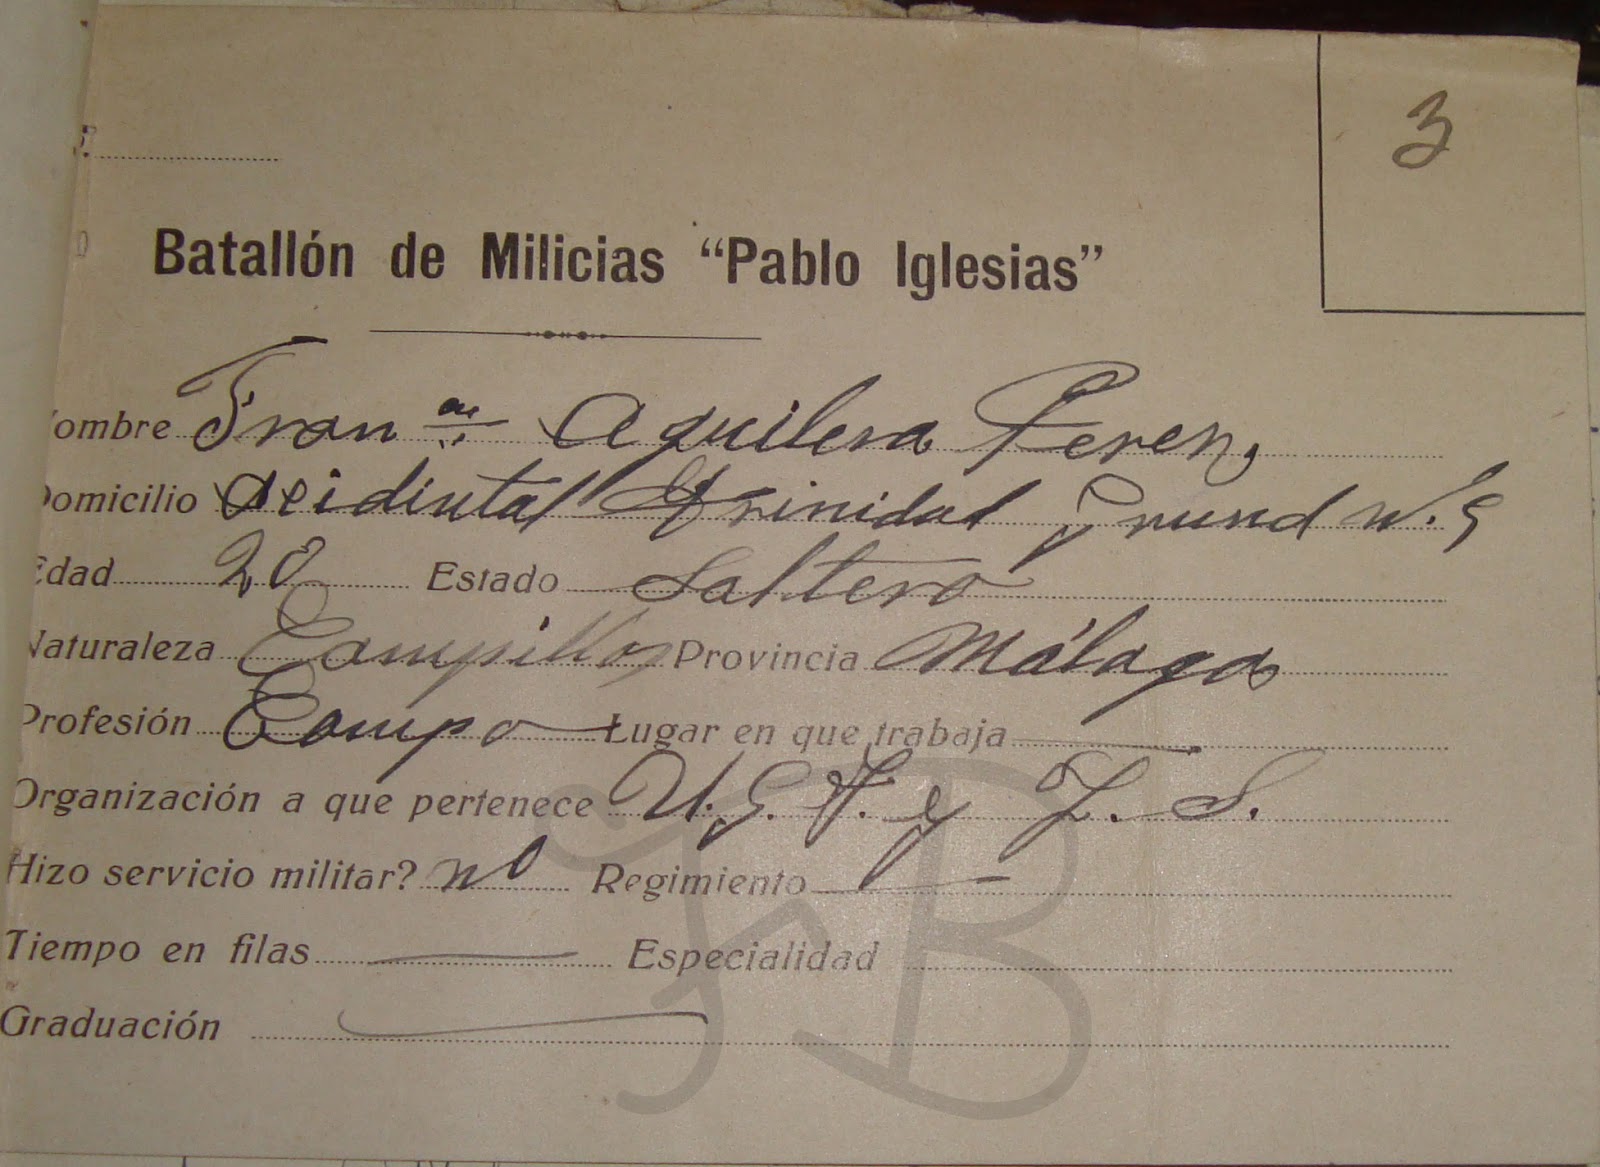 3
Batallón de Milicias “Pablo Iglesias”
ombre Fran.co Aguilera Peren,
Domicilio Acidintal Trinidad Grund N.º 9
Edad 20 Estado Saltero
Naturaleza Campillos Provincia Málaga
Profesión Campo Lugar en que trabaja
Organización a que pertenece U.G.T. y J.S.
Hizo servicio militar? no Regimiento
Tiempo en filas Especialidad
Graduación
FB